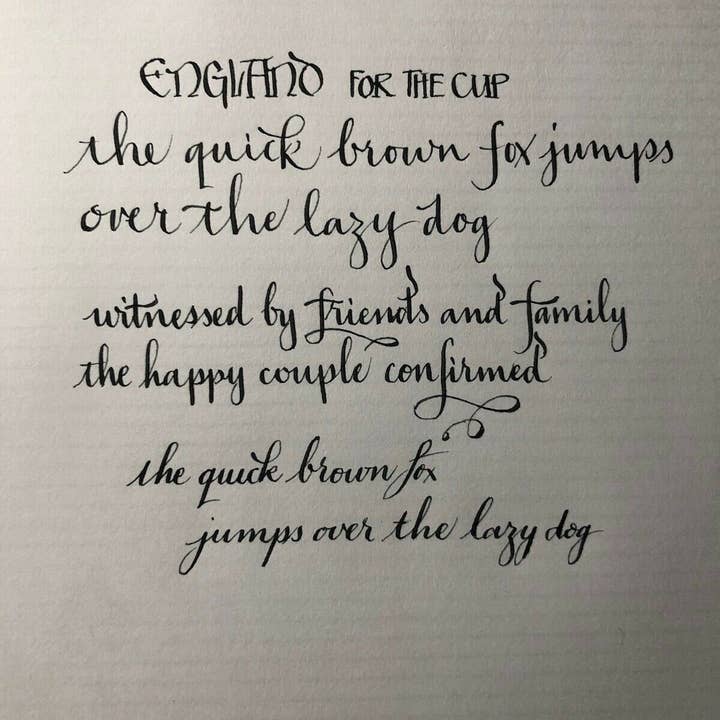 ENGLAND FOR THE CUP
the quick brown fox jumps
over the lazy dog
witnessed by friends and family
the happy couple confirmed
the quick brown fox
jumps over the lazy dog